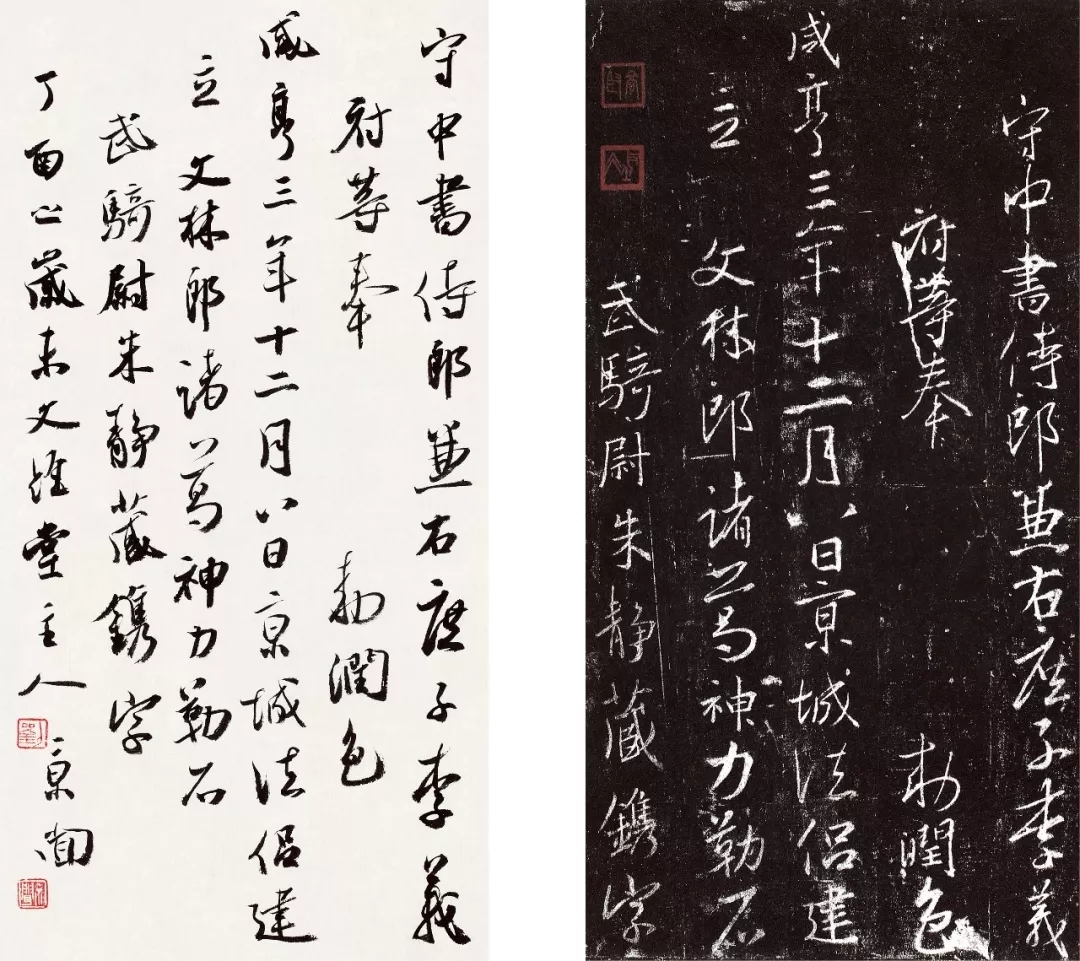 守中書侍郎兼右庶子李義
府等奉 勅潤色
咸亨三年十二月八日京城法侶建
立 文林郎諸葛神力勒石
武騎尉朱靜藏鐫字
丁酉之歲末文雄堂主人
守中書侍郎兼右庶子李義
府等奉 勅潤色
咸亨三年十二月八日京城法侶建
立 文林郎諸葛神力勒石
武騎尉朱靜藏鐫字